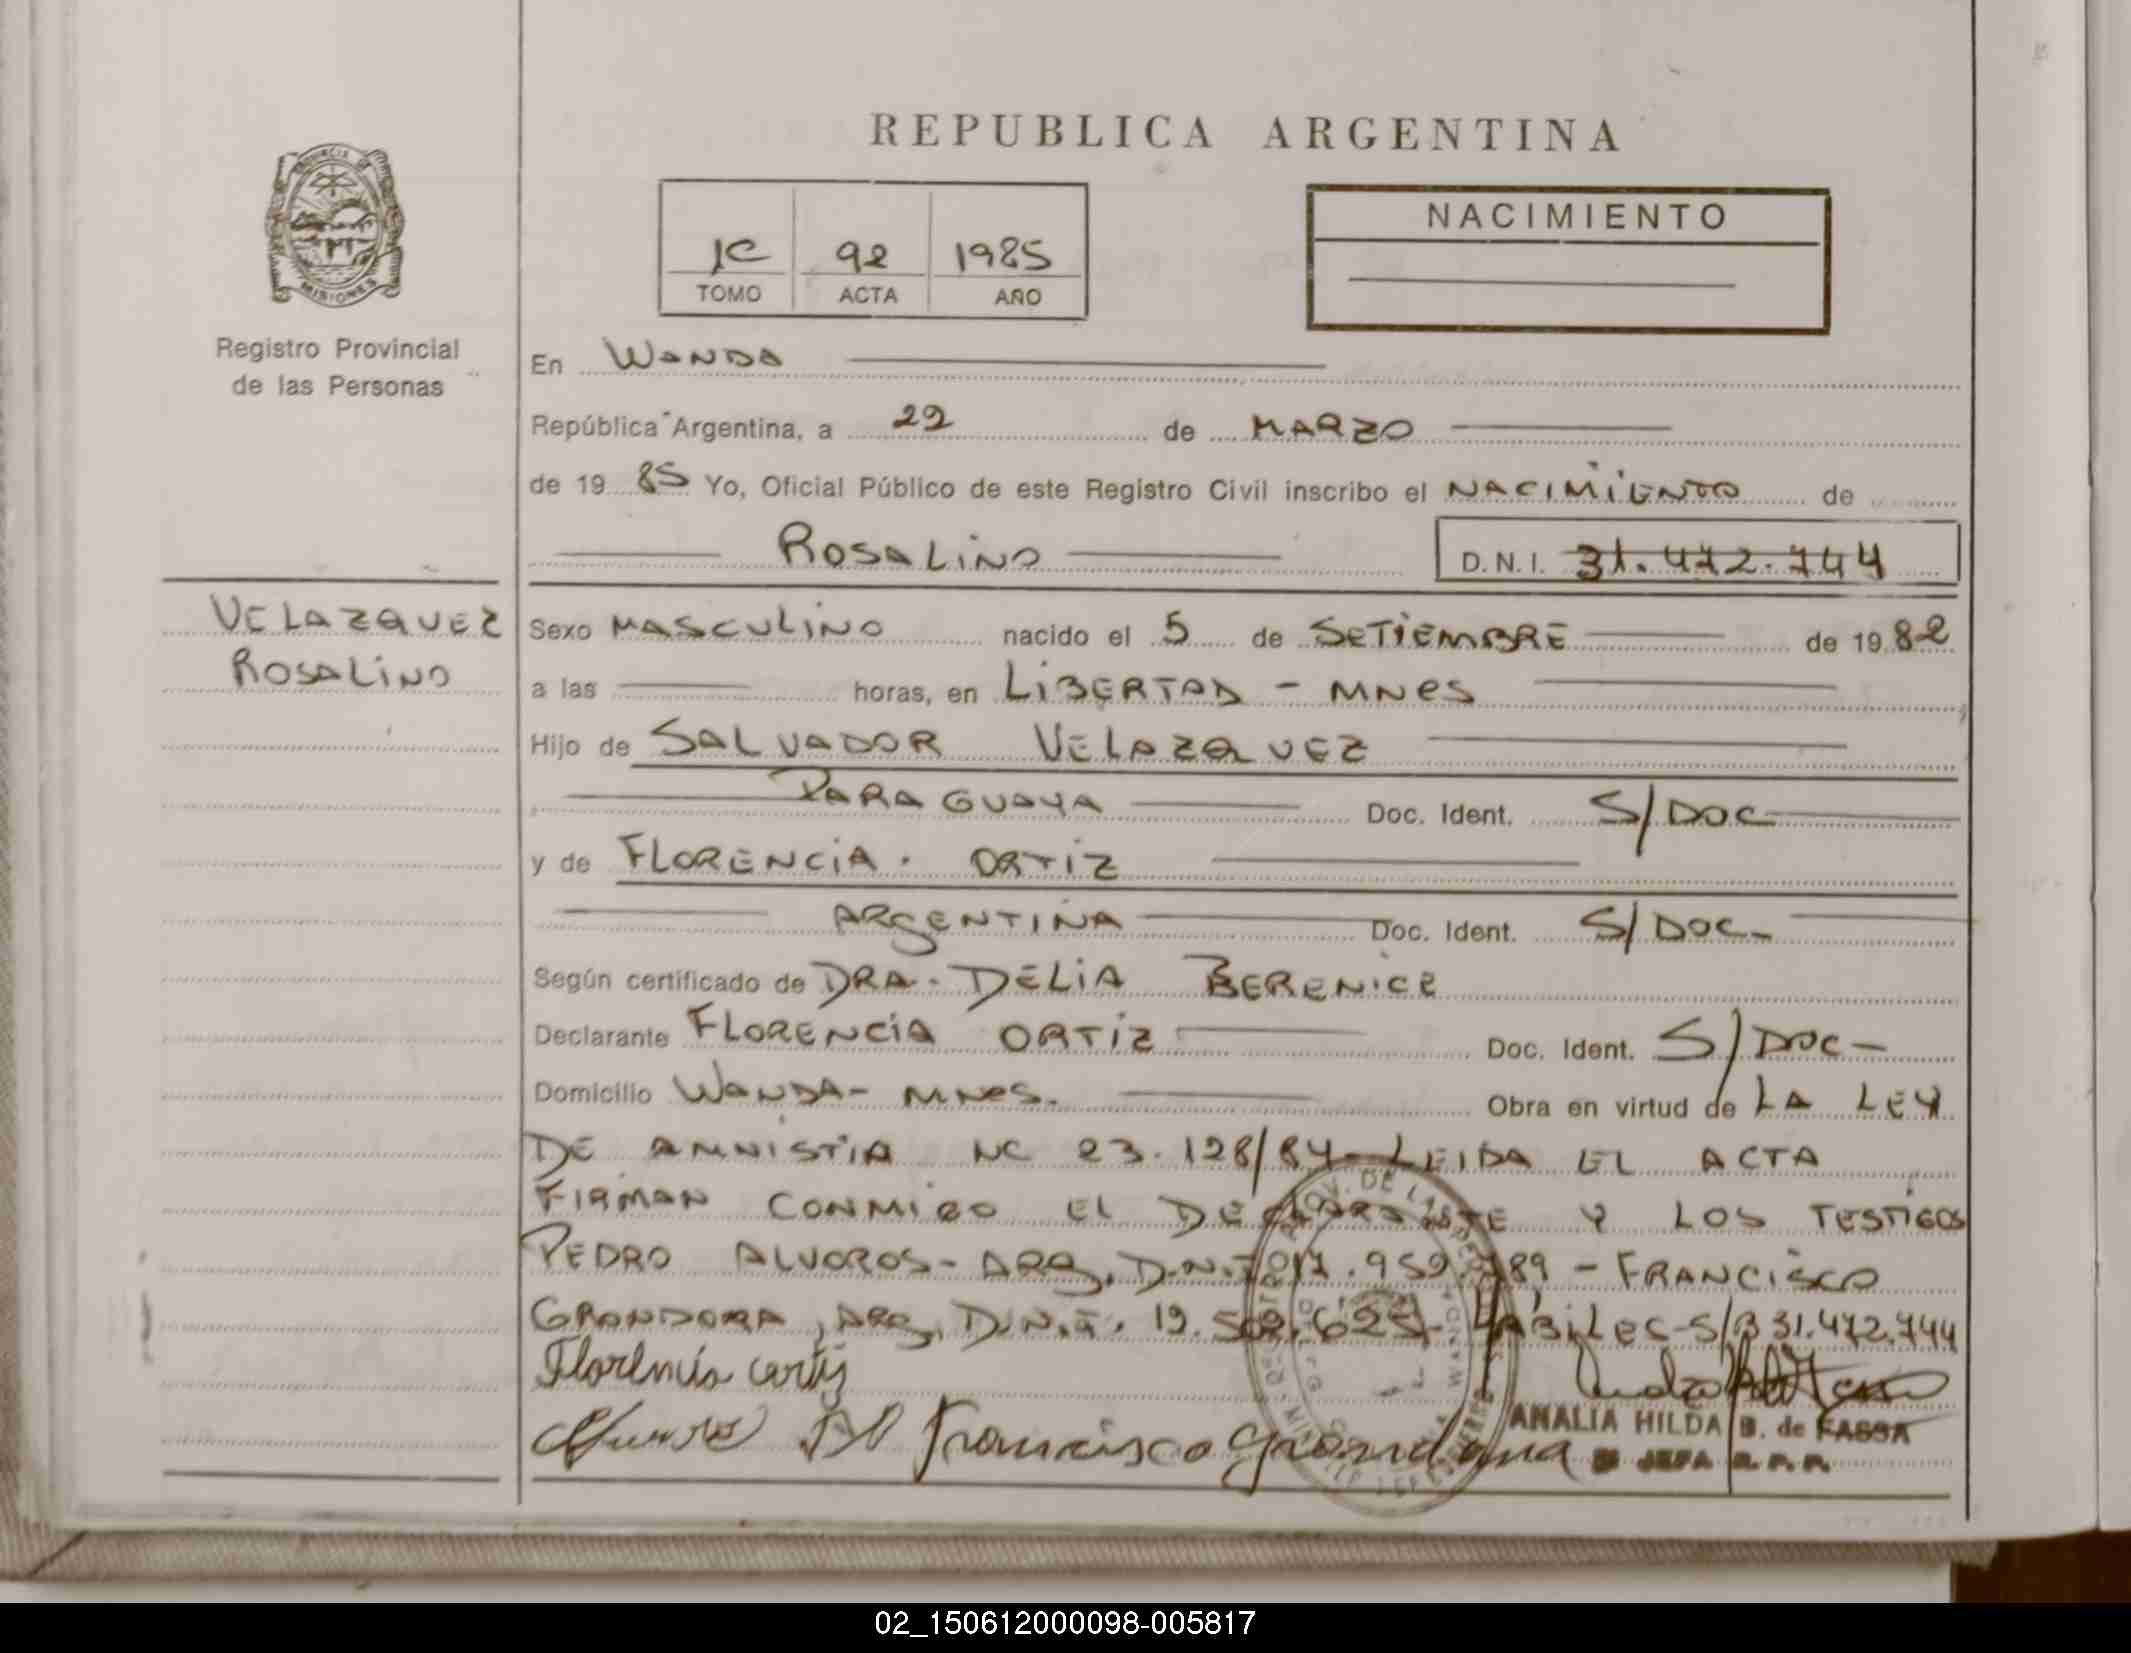 REPUBLICA ARGENTINA
PROVINCIA DE
MISIONES
Registro Provincial
de las Personas
1C 92 1985
TOMO ACTA AÑO
NACIMIENTO
En WANDA
República Argentina, a 22 de MARZO
de 19 85 Yo, Oficial Público de este Registro Civil inscribo el NACIMIENTO de
ROSALINO D.N.I. 31.472.744
VELAZQUEZ
ROSALINO
Sexo MASCULINO nacido el 5 de SETIEMBRE de 19 82
a las horas, en LIBERTAD - MNES
Hijo de SALVADOR VELAZQUEZ
PARAGUAYA Doc. Ident. S/DOC
y de FLORENCIA. ORTIZ
ARGENTINA Doc. Ident. S/DOC-
Según certificado de DRA. DELIA BERENICE
Declarante FLORENCIA ORTIZ Doc. Ident. S/DOC-
Domicilio WANDA- MNES. Obra en virtud de LA LEY
DE AMNISTIA NC 23.128/84- LEIDA EL ACTA
FIRMAN CONMIGO EL DECLARANTE Y LOS TESTIGOS
PEDRO ALVOROS- ARG. D.N.I. 959.789 - FRANCISCO
GRONDONA, ARG. D.N.I. 19. HABILES-S/B 31.472.744
Florencia ortiz
Francisco Grondona
ANALIA HILDA B. de FASSA
JEFA R. P. P.
02_150612000098-005817